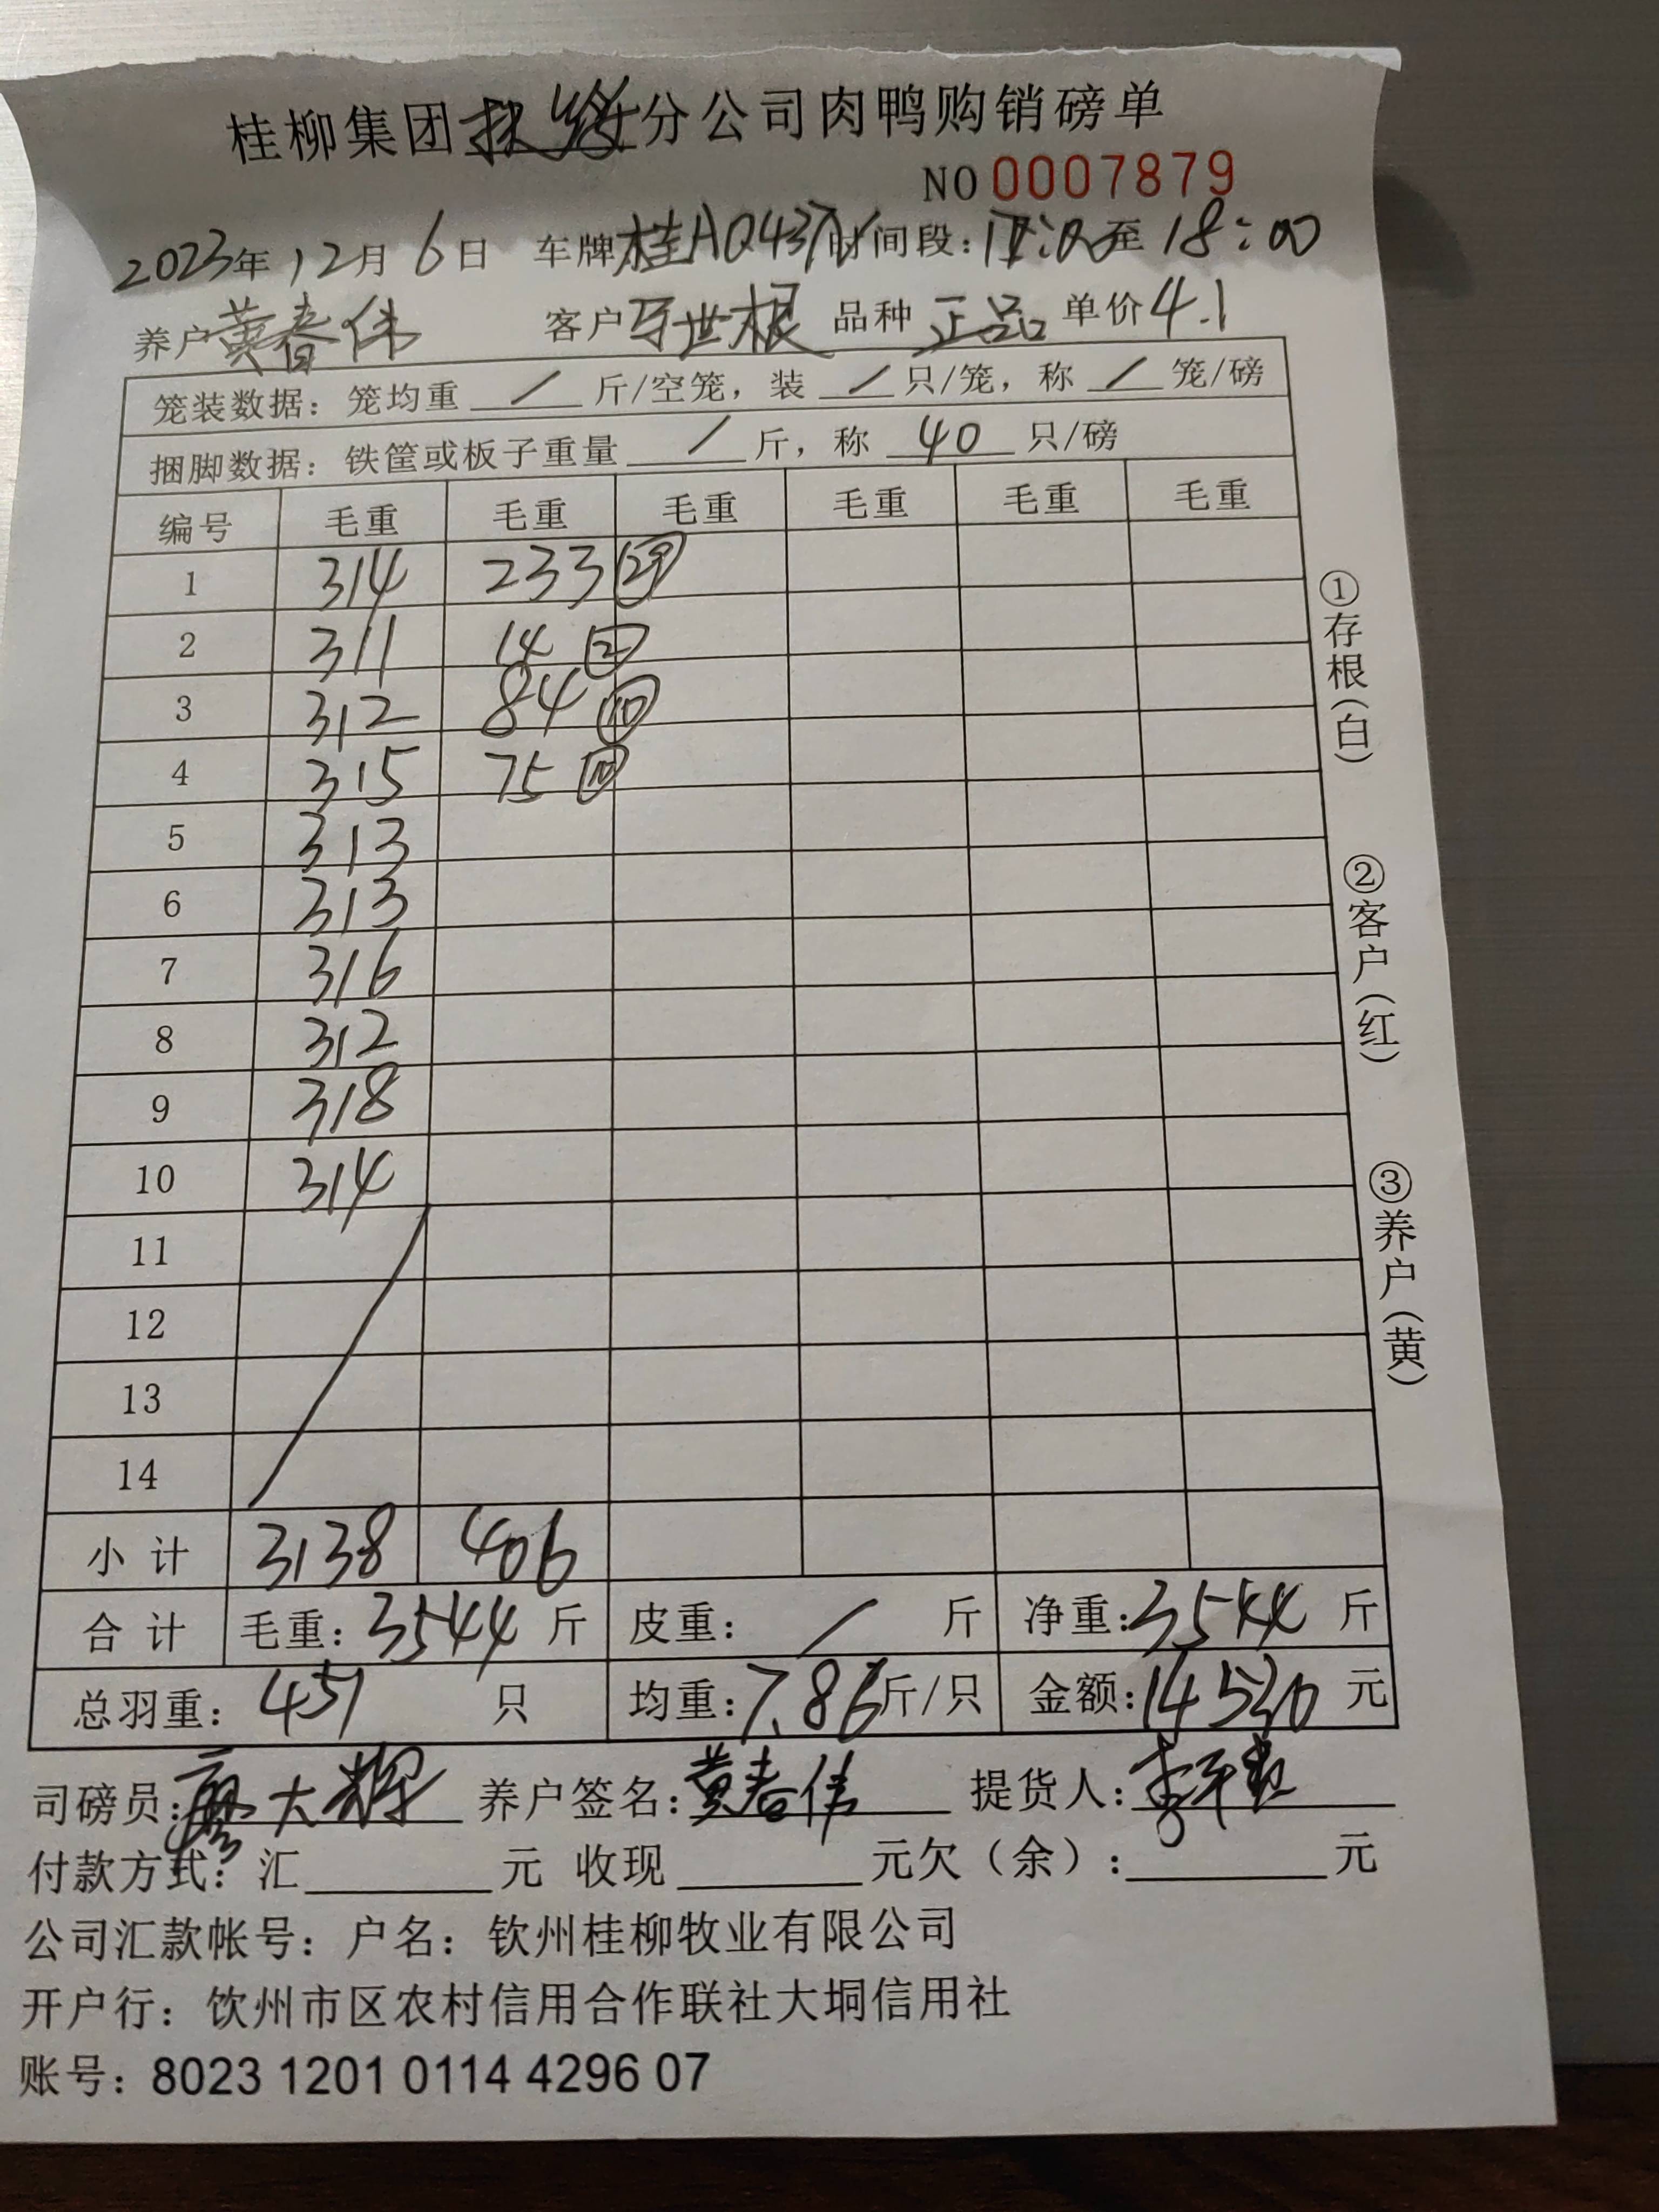 桂柳集团扶绥分公司肉鸭购销磅单
NO 0007879
2023年12月6日 车牌桂A 时间段: 至18:00
养户黄春伟 客户牙世根 品种正品 单价4.1
笼装数据：笼均重 / 斤/空笼，装 / 只/笼，称 / 笼/磅
捆脚数据：铁筐或板子重量 / 斤，称 40 只/磅
编号 毛重 毛重 毛重 毛重 毛重 毛重
1 314 233 29
2 311 14 2
3 312 84 10
4 315 75 10
5 313
6 313
7 316
8 312
9 318
10 314
11
12
13
14
小计 3138 406
合计 毛重：3544斤 皮重：/ 斤 净重：3544斤
总羽重：451 只 均重：7.86斤/只 金额：14530元
司磅员：廖大辉 养户签名：黄春伟 提货人：李
付款方式：汇 元 收现 元欠（余）： 元
公司汇款帐号：户名：钦州桂柳牧业有限公司
开户行：饮州市区农村信用合作联社大垌信用社
账号：8023 1201 0114 4296 07
①存根（白）
②客户（红）
③养户（黄）